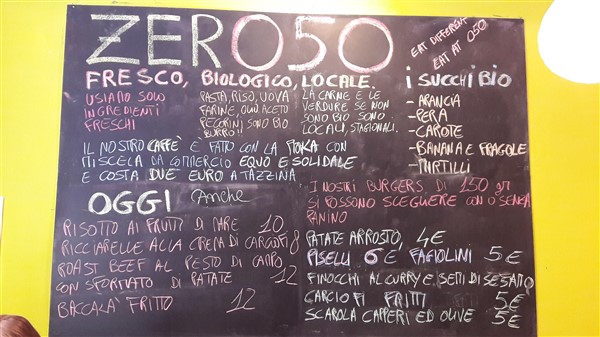 ZERO50
EAT DIFFERENT
EAT AT 050
FRESCO, BIOLOGICO, LOCALE.
USIAMO SOLO
INGREDIENTI
FRESCHI
PASTA, RISO, UOVA
FARINE, OLIO, ACETO
PECORINI SONO BIO
BURRO!!
LA CARNE E LE
VERDURE SE NON
SONO BIO SONO
LOCALI, STAGIONALI.
I SUCCHI BIO
- ARANCIA
- PERA
- CAROTE
- BANANA E FRAGOLE
- MIRTILLI
IL NOSTRO CAFFÈ È FATTO CON LA MOKA CON
MISCELA DA COMMERCIO EQUO E SOLIDALE
E COSTA DUE EURO A TAZZINA
OGGI ANCHE
RISOTTO AI FRUTTI DI MARE 10
RICCIARELLE ALLA CREMA DI CARCIOFI 8
ROAST BEEF AL PESTO DI CAMPO
CON SFORMATO DI PATATE 12
BACCALA' FRITTO 12
I NOSTRI BURGERS DI 150 gr
SI POSSONO SCEGLIERE CON O SENZA
PANINO
PATATE ARROSTO, 4€
PISELLI 6€ FAGIOLINI 5€
FINOCCHI AL CURRY E SEMI DI SESAMO
CARCIOFI FRITTI 5€
SCAROLA CAPPERI ED OLIVE 5€